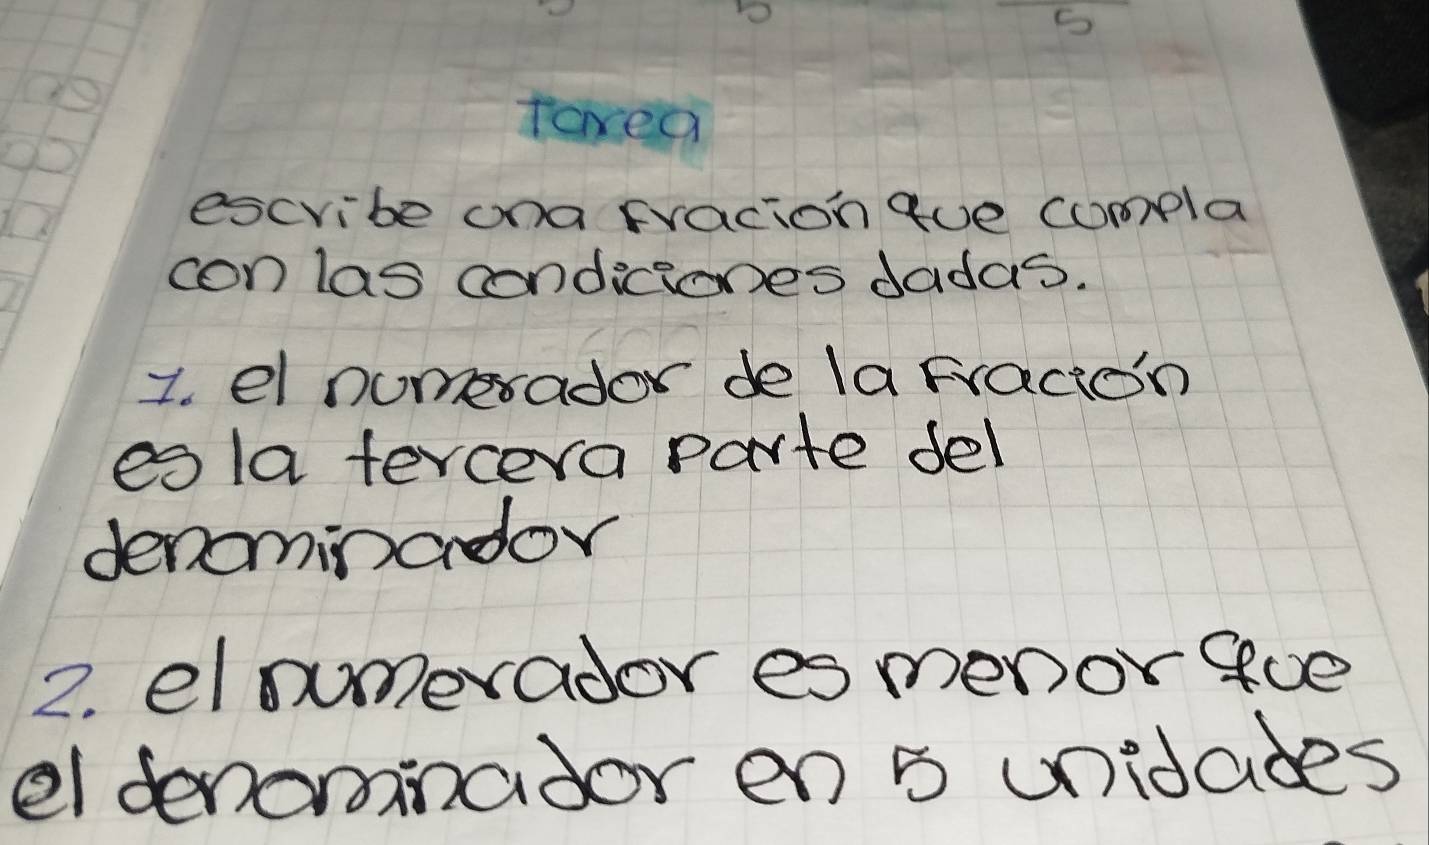 5
Tarea
escribe una fración que cumpla
con las condiciones dadas.
1. el numerador de la Fración
es la tercera parte del
denominador
2. el numerador es menor que
el denominador en 5 unidades